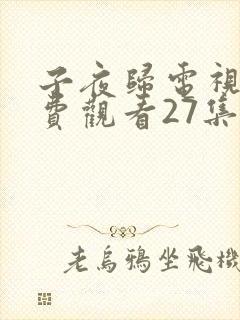 子夜歸電視
費觀看27集
老烏鴉坐飛機